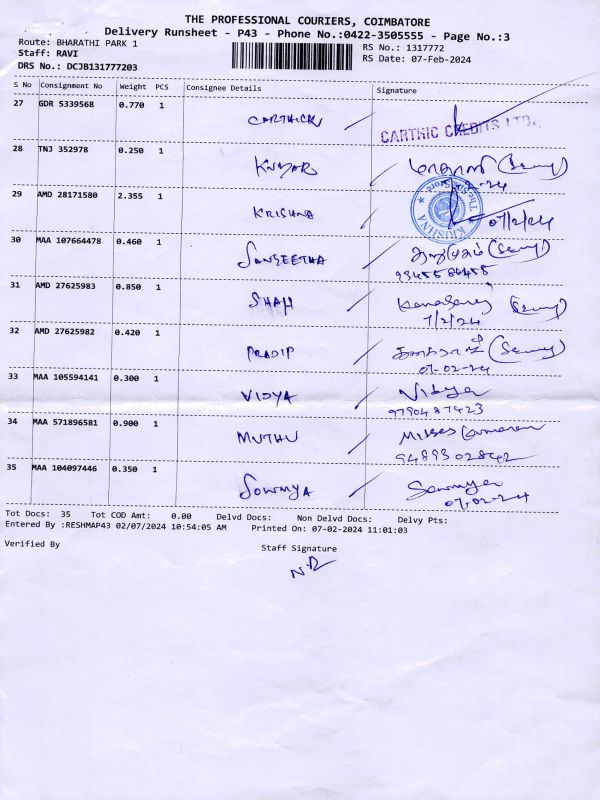 THE PROFESSIONAL COURIERS, COIMBATORE
Delivery Runsheet - P43 - Phone No.:0422-3505555 - Page No.:3
Route: BHARATHI PARK 1
RS No.: 1317772
Staff: RAVI
RS Date: 07-Feb-2024
DRS No.: DCJB131777203
S No Consignment No Weight PCS Consignee Details Signature
27 GDR 5339568 0.770 1 CARTHICK
CARTHIC CREDITS LTD.
28 TNJ 352978 0.250 1 KUMAR
29 AMD 28171580 2.355 1 KRISHNA 07/2/24
KRISHNA
30 MAA 107664478 0.460 1 SANGEETHA
31 AMD 27625983 0.850 1 SHAH
7/2/24
32 AMD 27625982 0.420 1 PRADIP
07-02-24
33 MAA 105594141 0.300 1 VIDYA Vidya
9790487423
34 MAA 571896581 0.900 1 MUTHU
9489302842
35 MAA 104097446 0.350 1 SOWMYA Sowmya
07-02-24
Tot Docs: 35 Tot COD Amt: 0.00 Delvd Docs: Non Delvd Docs: Delvy Pts:
Entered By :RESHMAP43 02/07/2024 10:54:05 AM Printed On: 07-02-2024 11:01:03
Verified By Staff Signature